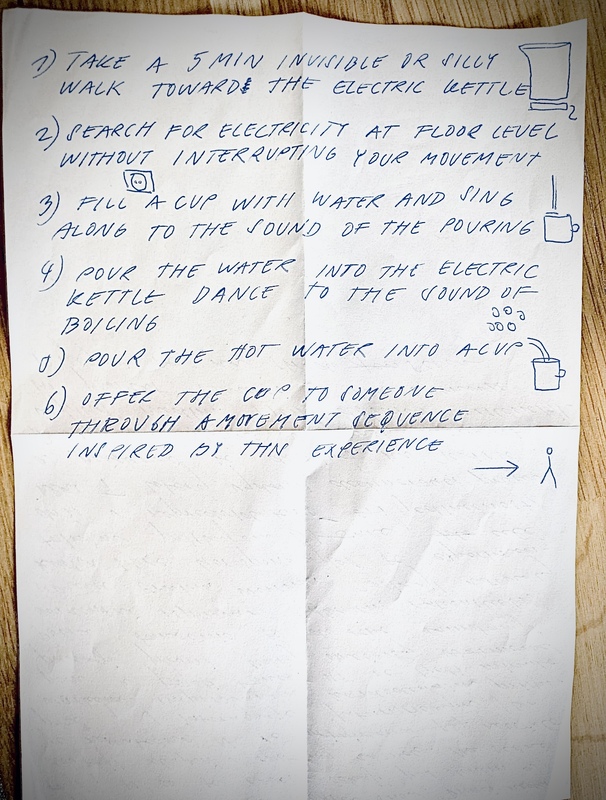 1) TAKE A 5 MIN INVISIBLE OR SILLY
WALK TOWARDS THE ELECTRIC KETTLE
2) SEARCH FOR ELECTRICITY AT FLOOR LEVEL
WITHOUT INTERRUPTING YOUR MOVEMENT
3) FILL A CUP WITH WATER AND SING
ALONG TO THE SOUND OF THE POURING
4) POUR THE WATER INTO THE ELECTRIC
KETTLE DANCE TO THE SOUND OF
BOILING
5) POUR THE HOT WATER INTO A CUP
6) OFFER THE CUP TO SOMEONE
THROUGH A MOVEMENT SEQUENCE
INSPIRED BY THIS EXPERIENCE